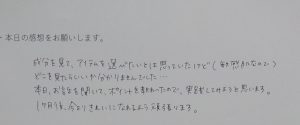 ・本日の感想をお願いします。
成分を見て、アイテムを選びたいとは思っていたけど(敏感肌なので)
どこを見たらいいか分かりませんでした…
本日、お話を聞いて、ポイントを教わったので、実践してみようと思います。
1ヶ月後、今よりきれいになれるよう頑張ります。